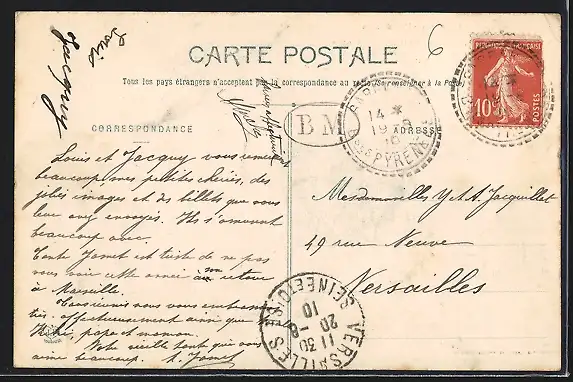 6
CARTE POSTALE
Tous les pays étrangers n'acceptent pas la correspondance au recto (Se renseigner à la Poste)
Louis
Jacquy
CORRESPONDANCE
ADRESSE
BM
14 *
19 - 8
10
Bses PYRÉNÉES
RÉPUBLIQUE FRANÇAISE
10
POSTES
Louis et Jacquy vous remercient
beaucoup, mes petites chéries, des
jolies images et des billets que vous
leur avez envoyés. Ils s'amusent
beaucoup avec.
Tante Jomet est triste de ne pas
vous voir cette année à son retour
à Marseille.
Tous réunis nous vous embrassons
très affectueusement ainsi que
papa et maman.
Votre vieille tante qui vous
aime beaucoup. A. Jomet
Mesdemoiselles Y & A Jacquillat
49 rue Neuve
Versailles
VERSAILLES
SEINE ET OISE
11 30
20 - 8
10